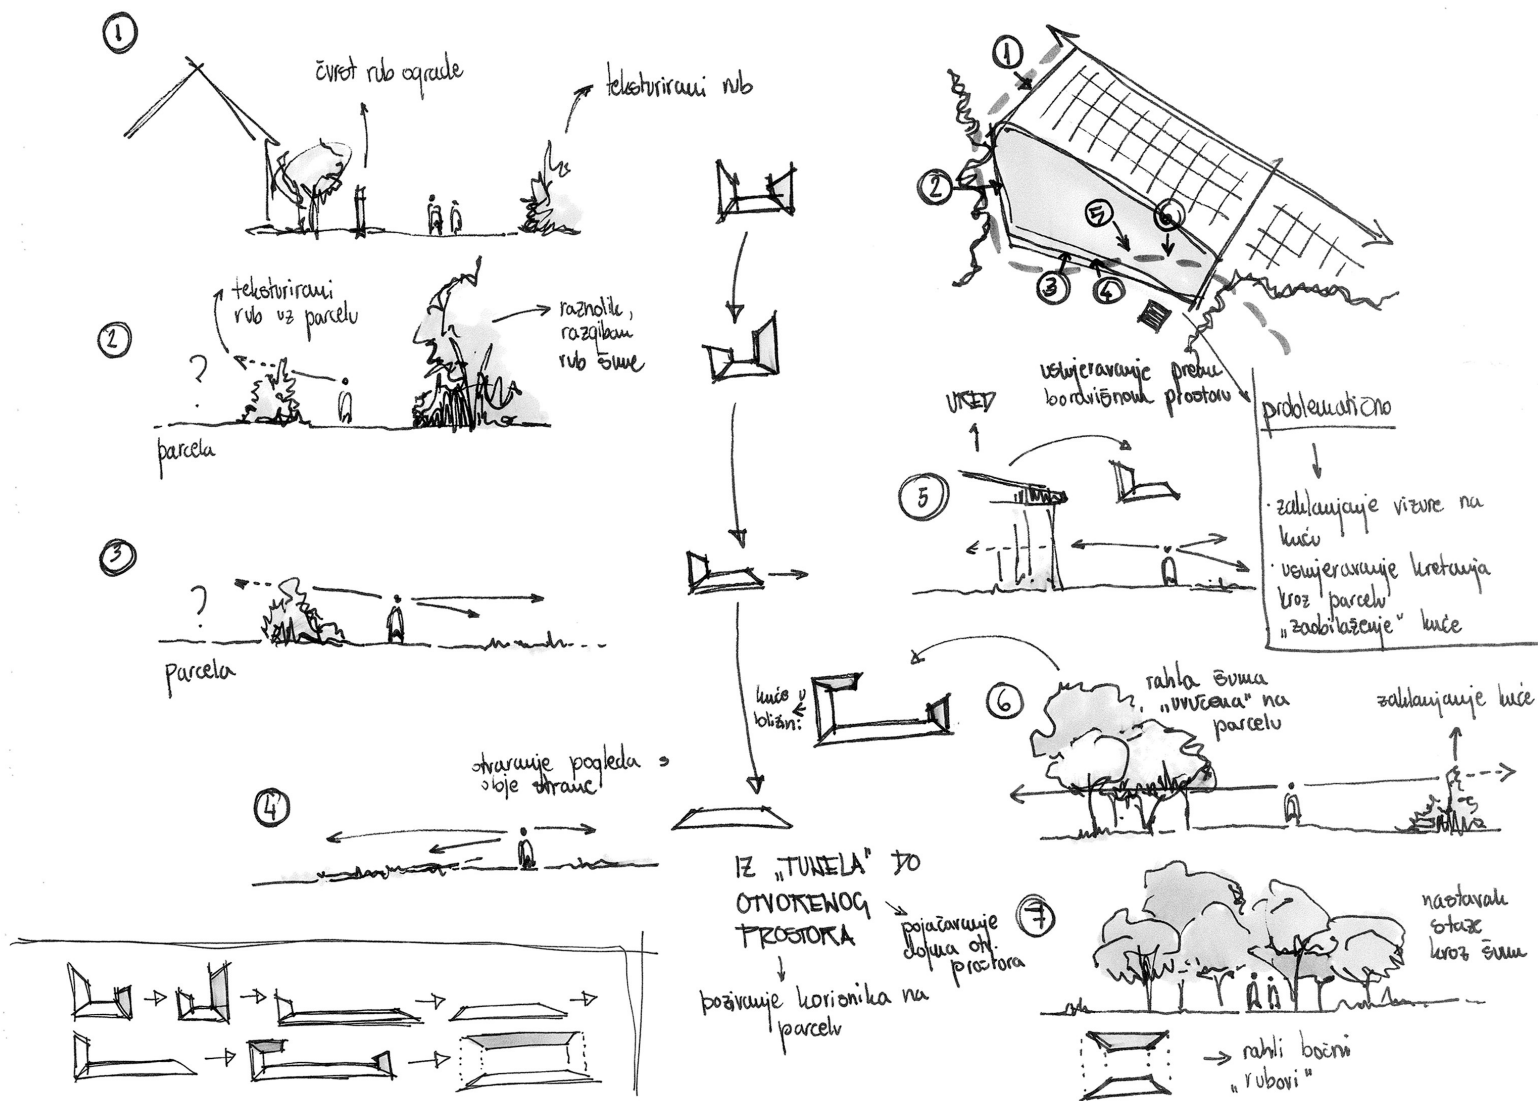 1
čvrst rub ograde
teksturirani rub
2
teksturirani
rub uz parcelu
?
raznolik,
razgiban
rub šume
parcela
3
?
parcela
4
otvaranje pogleda s
obje strane
kuće u
blizini
IZ „TUNELA" DO
OTVORENOG
PROSTORA
pojačavanje
dojma otv.
prostora
pozivanje korisnika na
parcelu
1
2
5
6
3
4
usmjeravanje prema
boravišnom prostoru
URED
5
problematično
· zaklanjanje vizure na
kuću
· usmjeravanje kretanja
kroz parcelu
„zaobilaženje" kuće
6
rahla šuma
„uvučena" na
parcelu
zaklanjanje kuće
7
nastavak
staze
kroz šumu
rahli bočni
„rubovi"